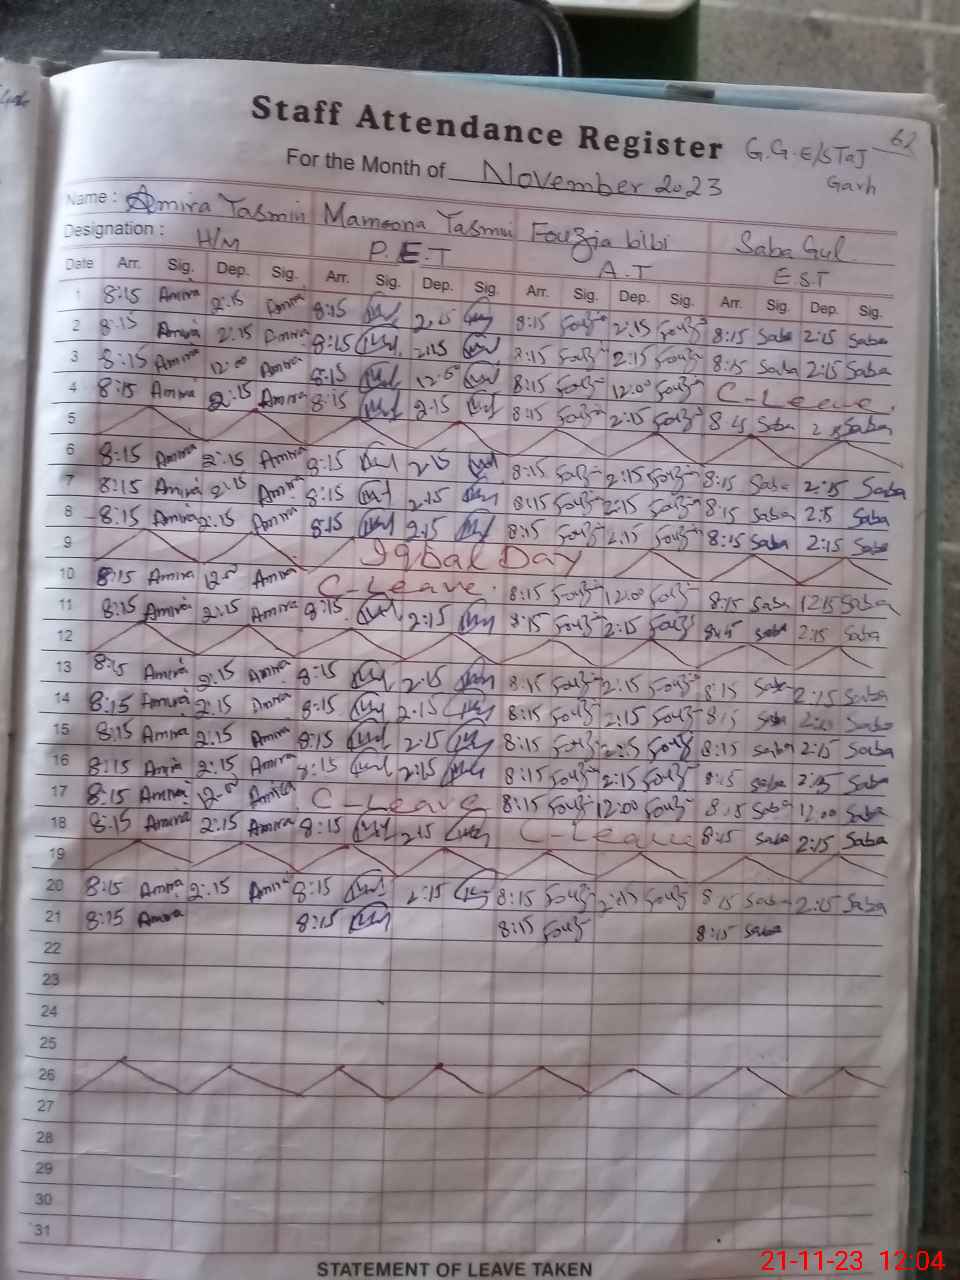 62
Staff Attendance Register G.G.E/S TaJ
For the Month of November 2023 Garh
Name : Amira Yasmin Mamoona Yasmin Fouzia bibi Saba Gul
Designation : H/M P.E.T A.T E.S.T
Date Arr. Sig. Dep. Sig. Arr. Sig. Dep. Sig. Arr. Sig. Dep. Sig. Arr. Sig. Dep. Sig.
1 8:15 Amira 2:15 Amira 8:15 2:15 8:15 Fouz 2:15 Fouz 8:15 Saba 2:15 Saba
2 8:15 Amira 2:15 Amira 8:15 2:15 8:15 Fouz 2:15 Fouz 8:15 Saba 2:15 Saba
3 8:15 Amira 12:00 Amira 8:15 12:00 8:15 Fouz 12:00 Fouz C-Leave.
4 8:15 Amira 2:15 Amira 8:15 2:15 8:15 Fouz 2:15 Fouz 8:15 Saba Saba
5
6 8:15 Amira 2:15 Amira 8:15 2:15 8:15 Fouz 2:15 Fouz 8:15 Saba 2:15 Saba
7 8:15 Amira 2:15 Amira 8:15 2:15 8:15 Fouz 2:15 Fouz 8:15 Saba 2:15 Saba
8 8:15 Amira 2:15 Amira 8:15 2:15 8:15 Fouz 2:15 Fouz 8:15 Saba 2:15 Saba
9 Iqbal Day
10 8:15 Amira 12:00 Amira C-Leave. 8:15 Fouz 12:00 Fouz 8:15 Saba 12:15 Saba
11 8:15 Amira 2:15 Amira 8:15 2:15 8:15 Fouz 2:15 Fouz 8:15 Saba 2:15 Saba
12
13 8:15 Amira 2:15 Amira 8:15 2:15 8:15 Fouz 2:15 Fouz 8:15 Saba 2:15 Saba
14 8:15 Amira 2:15 Amira 8:15 2:15 8:15 Fouz 2:15 Fouz 8:15 Saba Saba
15 8:15 Amira 2:15 Amira 8:15 2:15 8:15 Fouz 2:15 Fouz 8:15 Saba 2:15 Saba
16 8:15 Amira 2:15 Amira 8:15 2:15 8:15 Fouz 2:15 Fouz 8:15 Saba 2:15 Saba
17 8:15 Amira 12:00 Amira C-Leave 8:15 Fouz 12:00 Fouz 8:15 Saba 12:00 Saba
18 8:15 Amira 2:15 Amira 8:15 2:15 C-Leave 8:15 Saba 2:15 Saba
19
20 8:15 Amira 2:15 Amira 8:15 2:15 8:15 Fouz 2:15 Fouz 8:15 Saba 2:15 Saba
21 8:15 Amira 8:15 8:15 Fouz 8:15 Saba
22
23
24
25
26
27
28
29
30
31
STATEMENT OF LEAVE TAKEN
21-11-23 12:04